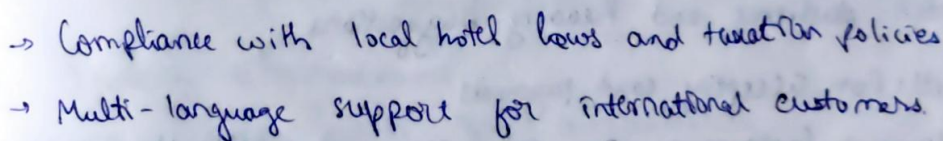 → Compliance with local hotel laws and taxation policies
→ Multi-language support for international customers.